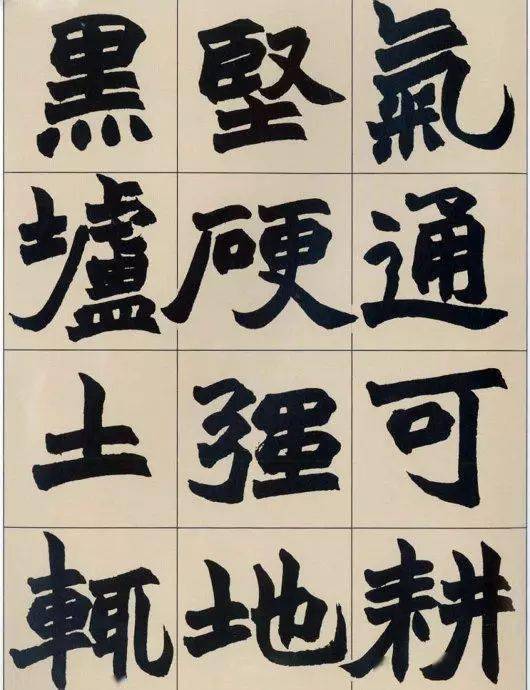 氣通可耕
堅硬强地
黑壚土輒